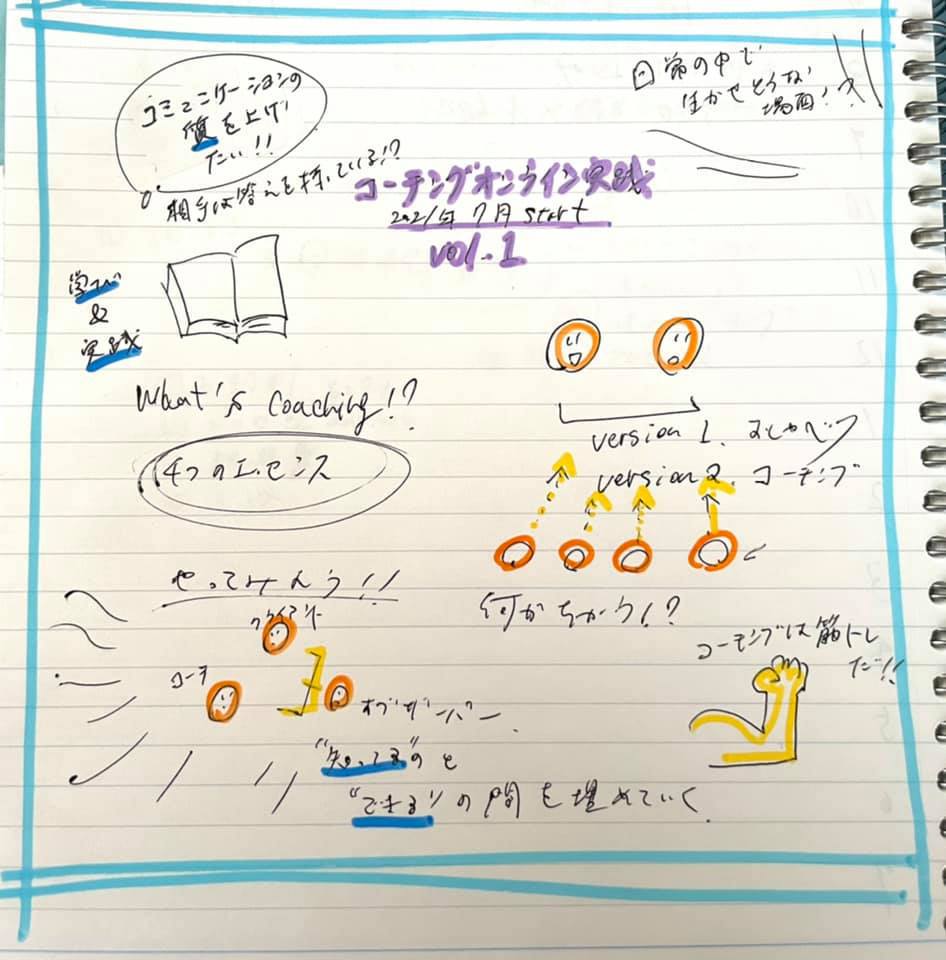 コミュニケーションの
質を上げ
たい!!
相手は答えを持っている!?
日常の中で
生かせそうな
場面!?
コーチングオンライン実践
2021年7月start
vol.1
学び
&
実践
What's coaching!?
4つのエッセンス
version 1. おしゃべり
version 2. コーチング
やってみよう!!
クライアント
コーチ
オブザーバー
何がちがう!?
コーチングは筋トレ
だ!!
"知ってる"のと
"できる"の間を埋めていく